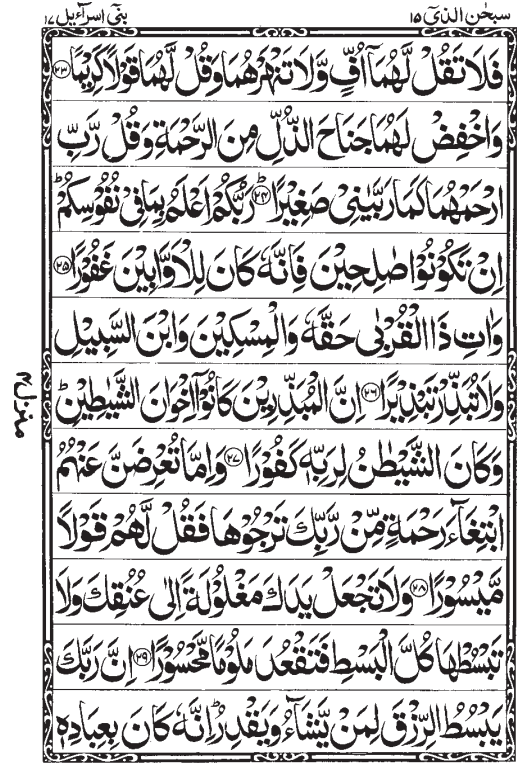 سبحٰن الذیٓ ۱۵
بنیٓ اسرآءیل ۱۷
فَلَا تَقُلْ لَّهُمَاۤ اُفٍّ وَّلَا تَنْهَرْهُمَا وَقُلْ لَّهُمَا قَوْلًا كَرِيْمًا ﴿۲۳﴾
وَاخْفِضْ لَهُمَا جَنَاحَ الذُّلِّ مِنَ الرَّحْمَةِ وَقُلْ رَّبِّ
ارْحَمْهُمَا كَمَا رَبَّيٰنِىْ صَغِيْرًا ﴿۲۴﴾ؕ رَبُّكُمْ اَعْلَمُ بِمَا فِىْ نُفُوْسِكُمْؕ
اِنْ تَكُوْنُوْا صٰلِحِيْنَ فَاِنَّهٗ كَانَ لِلْاَوَّابِيْنَ غَفُوْرًا ﴿۲۵﴾
وَاٰتِ ذَا الْقُرْبٰى حَقَّهٗ وَالْمِسْكِيْنَ وَابْنَ السَّبِيْلِ
وَلَا تُبَذِّرْ تَبْذِيْرًا ﴿۲۶﴾ اِنَّ الْمُبَذِّرِيْنَ كَانُوْۤا اِخْوَانَ الشَّيٰطِيْنِؕ
وَكَانَ الشَّيْطٰنُ لِرَبِّهٖ كَفُوْرًا ﴿۲۷﴾ وَاِمَّا تُعْرِضَنَّ عَنْهُمُ
ابْتِغَآءَ رَحْمَةٍ مِّنْ رَّبِّكَ تَرْجُوْهَا فَقُلْ لَّهُمْ قَوْلًا
مَّيْسُوْرًا ﴿۲۸﴾ وَلَا تَجْعَلْ يَدَكَ مَغْلُوْلَةً اِلٰى عُنُقِكَ وَلَا
تَبْسُطْهَا كُلَّ الْبَسْطِ فَتَقْعُدَ مَلُوْمًا مَّحْسُوْرًا ﴿۲۹﴾ اِنَّ رَبَّكَ
يَبْسُطُ الرِّزْقَ لِمَنْ يَّشَآءُ وَيَقْدِرُؕ اِنَّهٗ كَانَ بِعِبَادِهٖ
منزل ۴